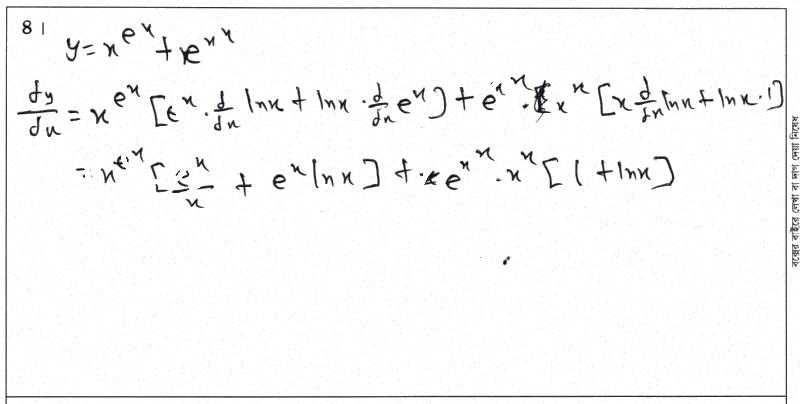 8|
y = x^{e^x} + e^{x^x}
dy/dx = x^{e^x} [e^x · d/dx lnx + lnx · d/dx e^x] + e^{x^x} · x^x [x d/dx lnx + lnx · 1]
= x^{e^x} [e^x/x + e^x lnx] + e^{x^x} · x^x [1 + lnx]
বক্সের বাইরে লেখা বা দাগ দেয়া নিষেধ